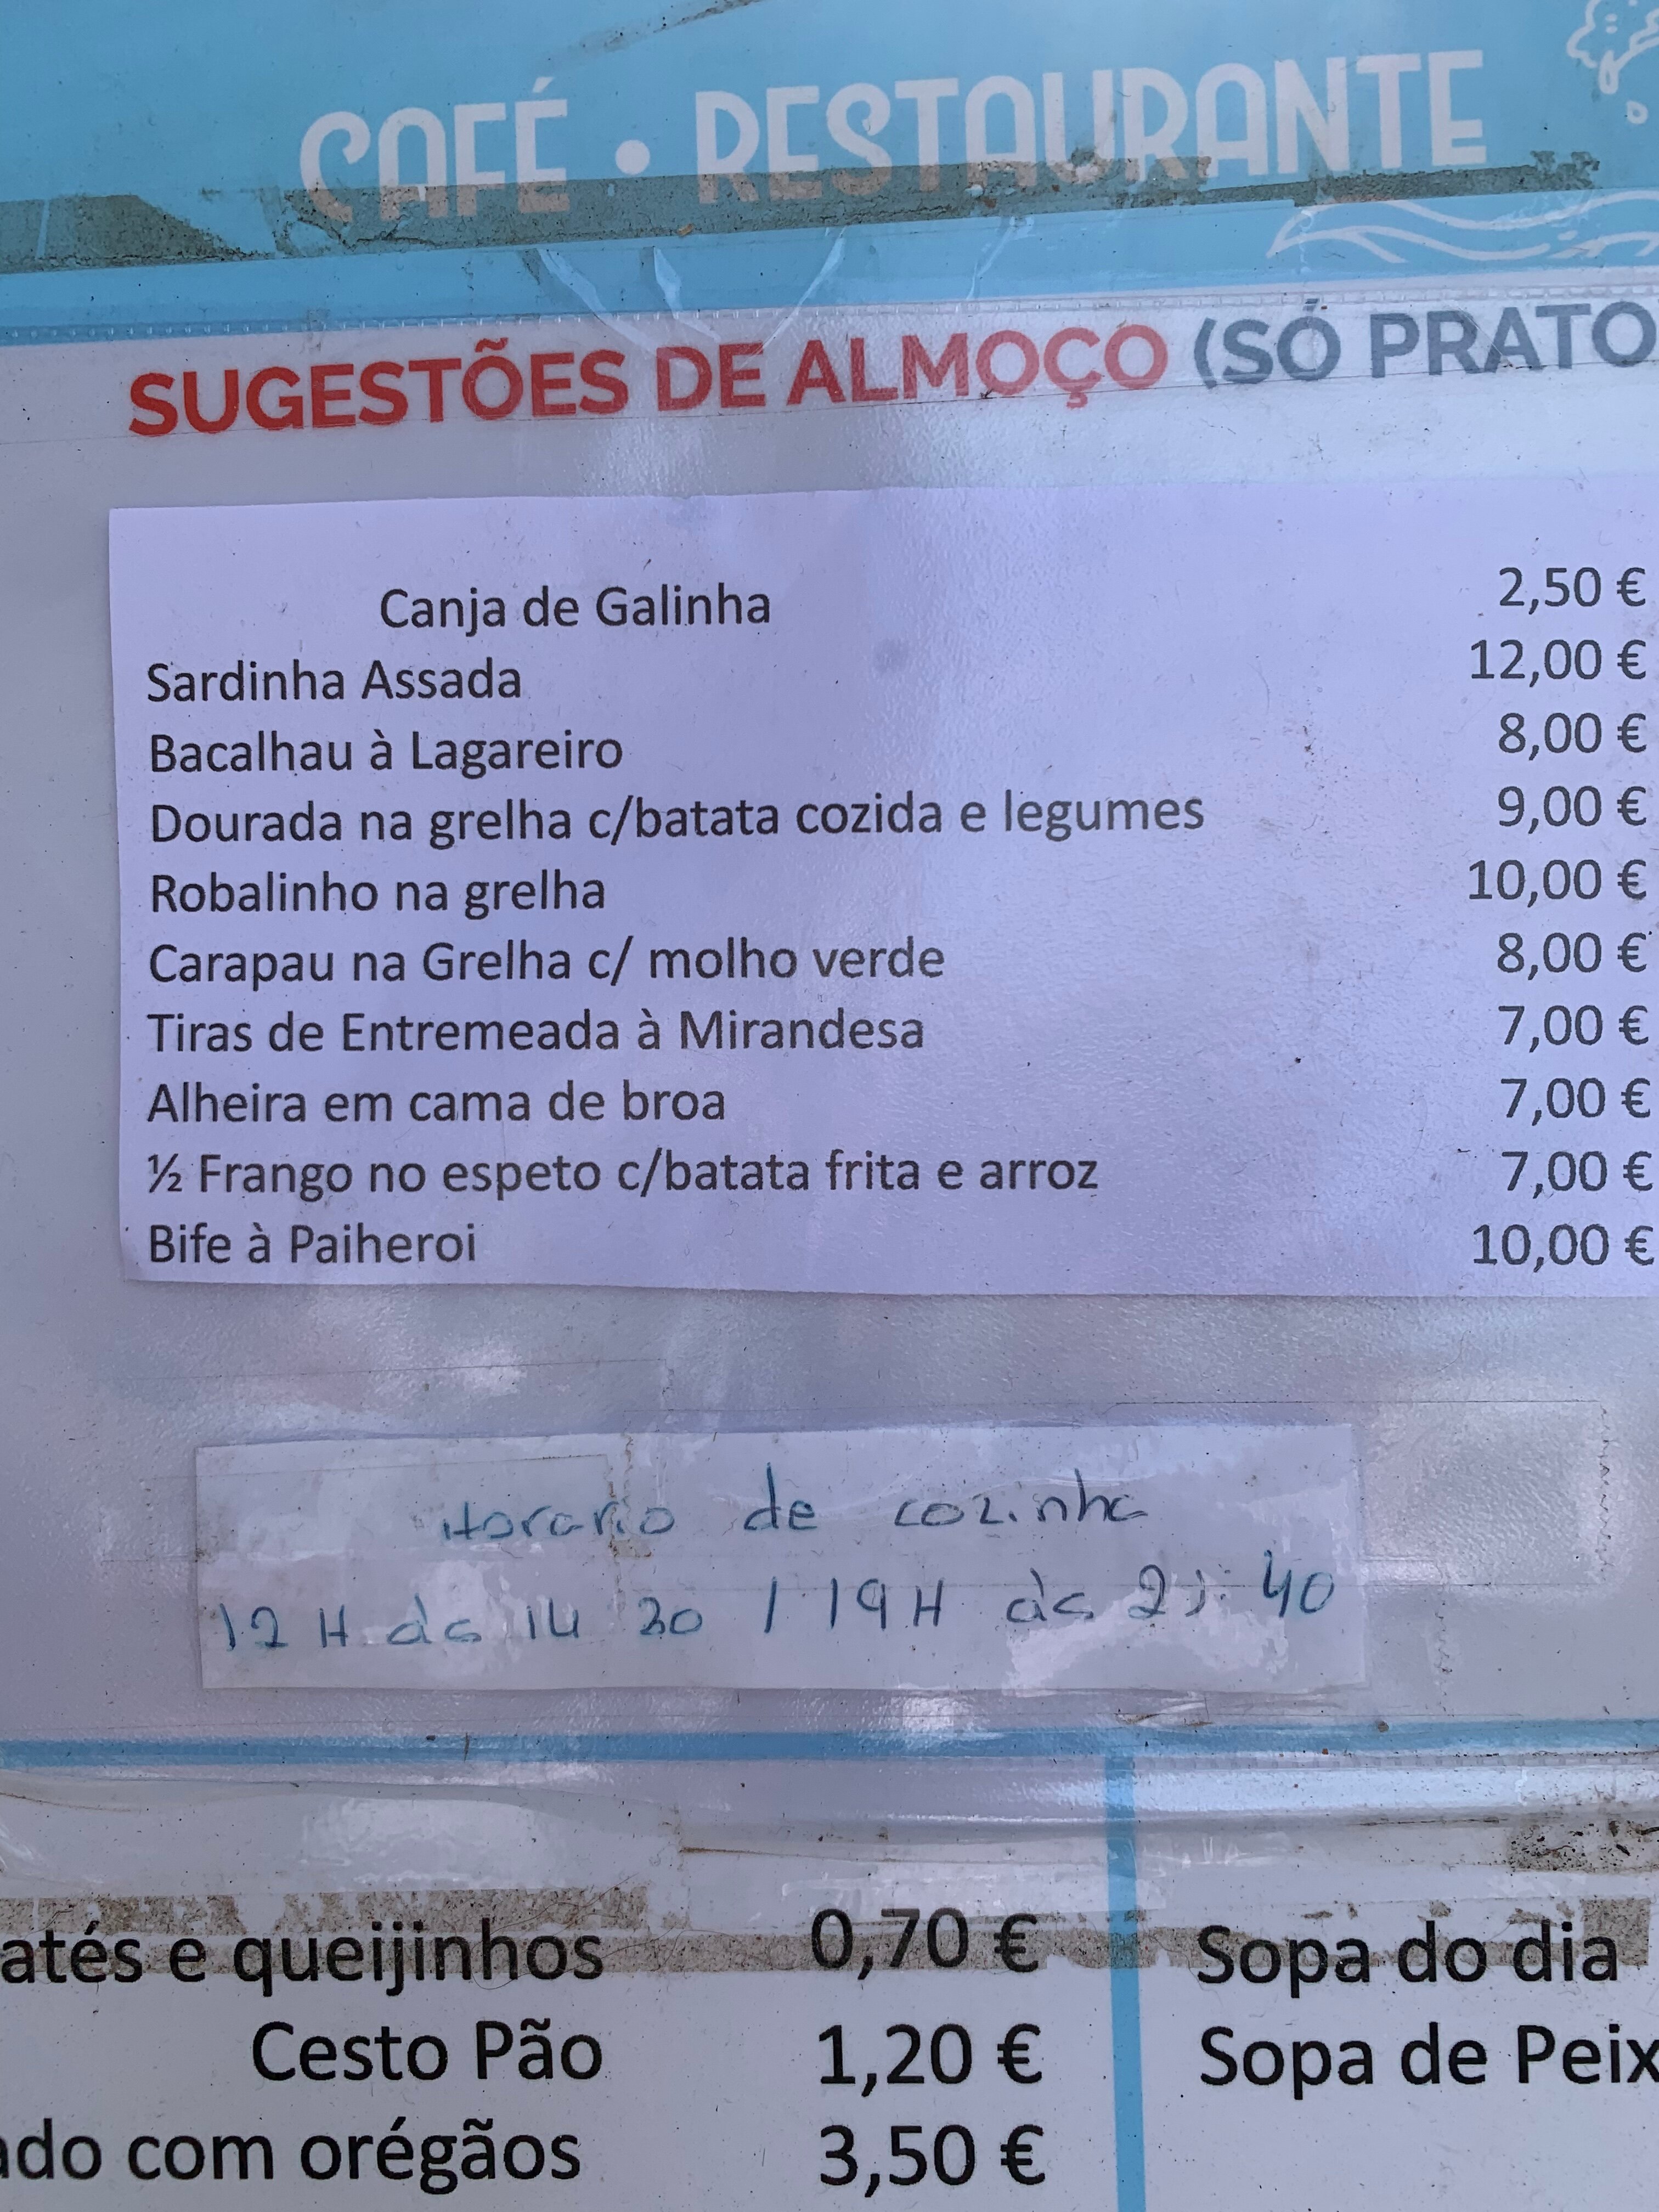 CAFÉ • RESTAURANTE
SUGESTÕES DE ALMOÇO (SÓ PRATO
Canja de Galinha 2,50 €
Sardinha Assada 12,00 €
Bacalhau à Lagareiro 8,00 €
Dourada na grelha c/batata cozida e legumes 9,00 €
Robalinho na grelha 10,00 €
Carapau na Grelha c/ molho verde 8,00 €
Tiras de Entremeada à Mirandesa 7,00 €
Alheira em cama de broa 7,00 €
½ Frango no espeto c/batata frita e arroz 7,00 €
Bife à Paiheroi 10,00 €
Horario de cozinha
12 H às 14 30 / 19 H às 21:40
atés e queijinhos 0,70 € Sopa do dia
Cesto Pão 1,20 € Sopa de Peix
ado com orégãos 3,50 €